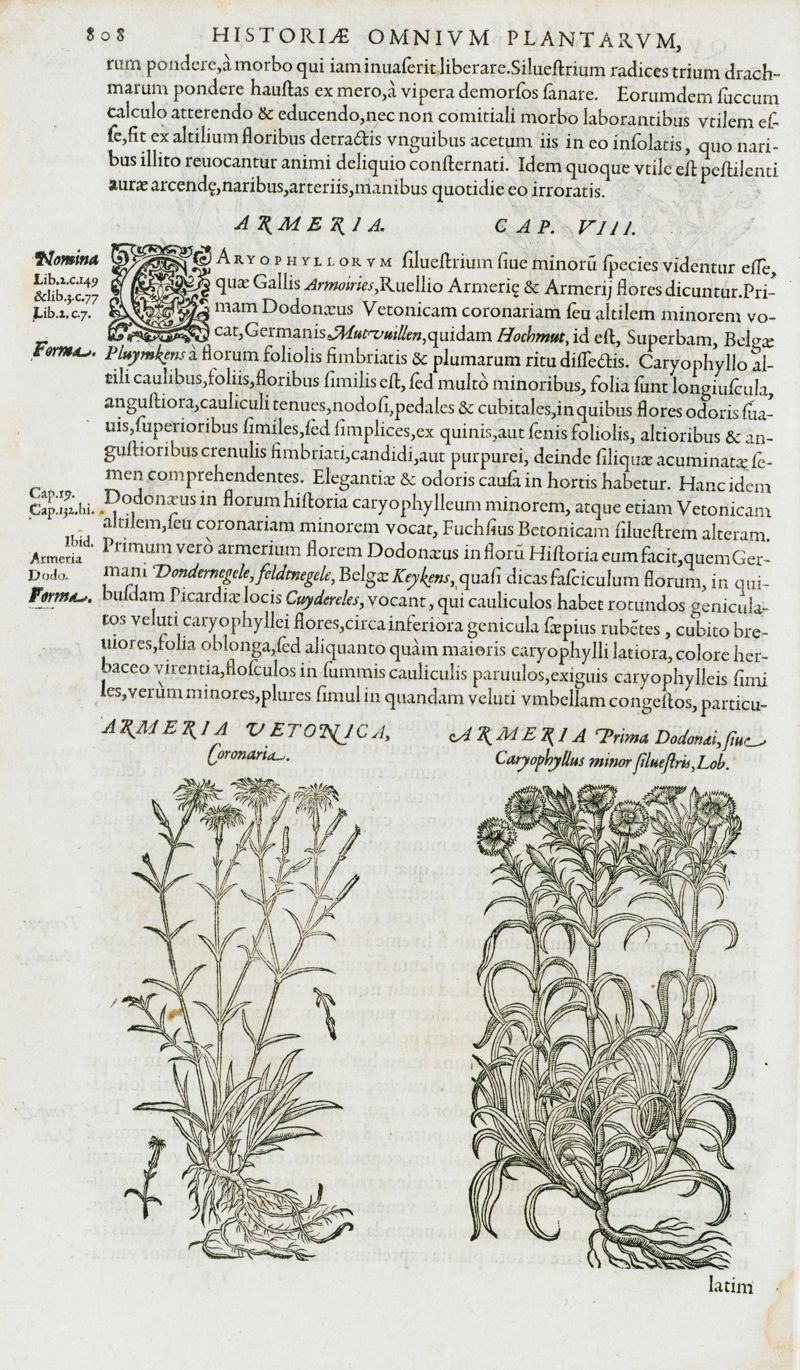 808 HISTORIÆ OMNIVM PLANTARVM,
rum pondere,à morbo qui iam inuaſerit liberare.Silueſtrium radices trium drach-
marum pondere hauſtas ex mero,à vipera demorſos ſanare. Eorumdem ſuccum
calculo atterendo & educendo,nec non comitiali morbo laborantibus vtilem eſ-
ſe,fit ex altilium floribus detractis vnguibus acetum iis in eo inſolatis, quo nari-
bus illito reuocantur animi deliquio conſternati. Idem quoque vtile eſt peſtilenti
auræ arcendę,naribus,arteriis,manibus quotidie eo irroratis.
ARMERIA. CAP. VIII.
Nomina
Lib.2.c.149
&lib.3.c.77
Lib.2.c.7.
CARYOPHYLLORVM ſilueſtrium ſiue minorū ſpecies videntur eſſe,
quæ Gallis Armoiries,Ruellio Armerię & Armerij flores dicuntur.Pri-
mam Dodonæus Vetonicam coronariam ſeu altilem minorem vo-
cat,Germanis Mutvuillen,quidam Hochmut, id eſt, Superbam, Belgæ
Forma.
Pluymkens à florum foliolis fimbriatis & plumarum ritu diſſectis. Caryophyllo al-
tili caulibus,foliis,floribus ſimilis eſt, ſed multò minoribus, folia ſunt longiuſcula,
anguſtiora,cauliculi tenues,nodoſi,pedales & cubitales,in quibus flores odoris ſua-
uis,ſuperioribus ſimiles,ſed ſimplices,ex quinis,aut ſenis foliolis, altioribus & an-
guſtioribus crenulis fimbriati,candidi,aut purpurei, deinde ſiliquæ acuminatæ ſe-
men comprehendentes. Elegantiæ & odoris cauſa in hortis habetur. Hanc idem
Cap.19.
Cap.132.hi.
Dodonæus in florum hiſtoria caryophylleum minorem, atque etiam Vetonicam
altilem,ſeu coronariam minorem vocat, Fuchſius Betonicam ſilueſtrem alteram.
Ibid.
Armeria
Dodo.
Primum verò armerium florem Dodonæus in florū Hiſtoria eum facit,quem Ger-
mani Dondernegele, feldtnegele, Belgæ Keykens, quaſi dicas faſciculum florum, in qui-
Forma.
buſdam Picardiæ locis Cuydereles, vocant, qui cauliculos habet rotundos genicula-
tos veluti caryophyllei flores,circa inferiora genicula ſæpius rubētes, cubito bre-
uiores,folia oblonga,ſed aliquanto quàm maioris caryophylli latiora, colore her-
baceo virentia,floſculos in ſummis cauliculis paruulos,exiguis caryophylleis ſimi
les,verùm minores,plures ſimul in quandam veluti vmbellam congeſtos, particu-
ARMERIA VETONICA,
Coronaria.
ARMERIA Prima Dodonæi, ſiue
Caryophyllus minor ſilueſtris, Lob.
latim